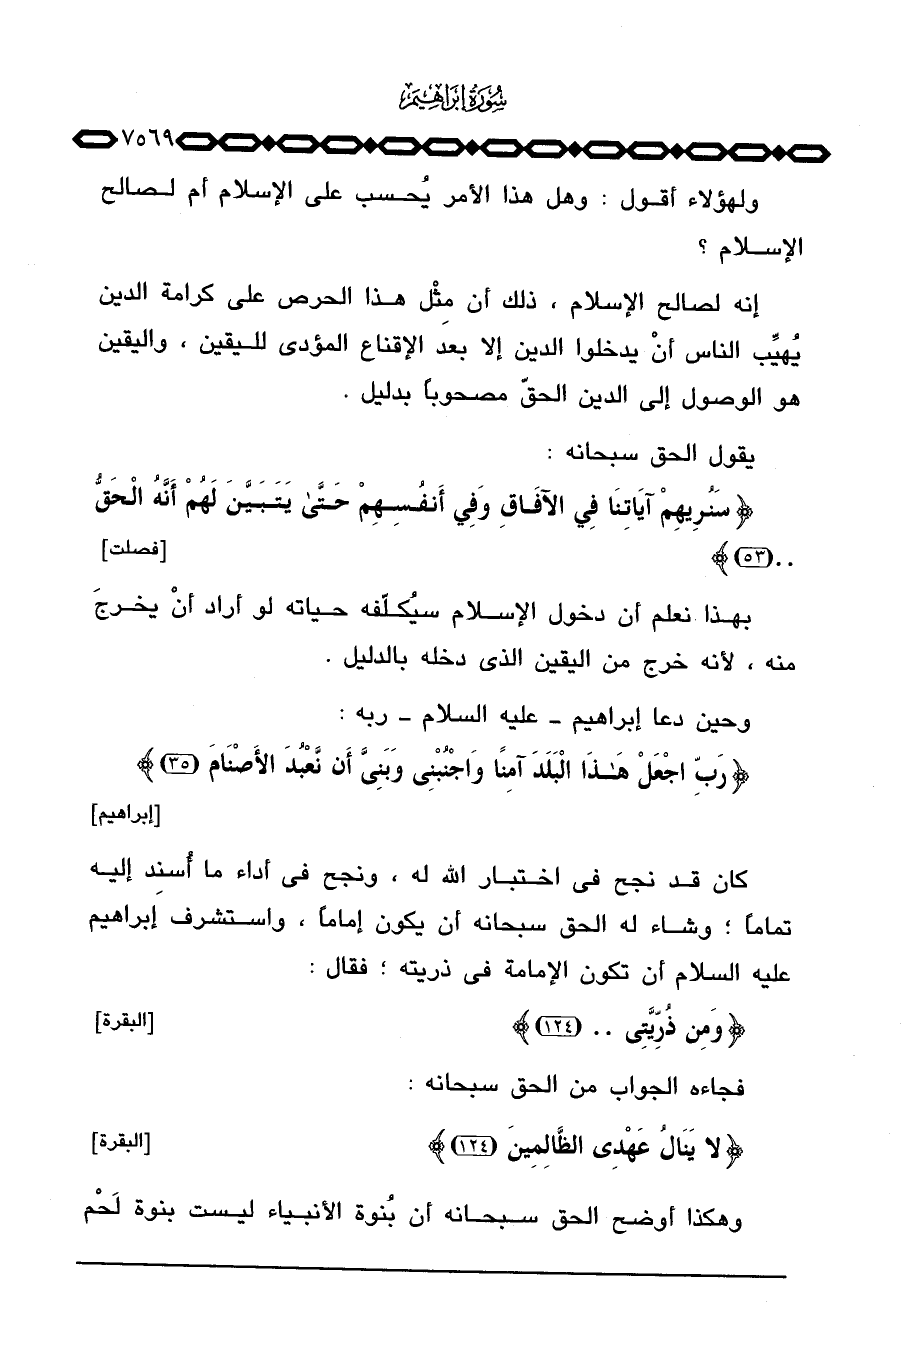 سُورَةُ إِبْرَاهِيمَ
٧٥٦٩
ولهؤلاء أقول : وهل هذا الأمر يُحسب على الإسلام أم لصالح
الإسلام ؟
إنه لصالح الإسلام ، ذلك أن مِثْل هذا الحرص على كرامة الدين
يُهيِّب الناس أنْ يدخلوا الدين إلا بعد الإقناع المؤدى لليقين ، واليقين
هو الوصول إلى الدين الحقّ مصحوباً بدليل .
يقول الحق سبحانه :
﴿ سَنُرِيهِمْ آيَاتِنَا فِي الآفَاقِ وَفِي أَنفُسِهِمْ حَتَّىٰ يَتَبَيَّنَ لَهُمْ أَنَّهُ الْحَقُّ
..(٥٣)﴾ [فصلت]
بهذا نعلم أن دخول الإسلام سيُكلّفه حياته لو أراد أنْ يخرجَ
منه ، لأنه خرج من اليقين الذى دخله بالدليل .
وحين دعا إبراهيم - عليه السلام - ربه :
﴿ رَبِّ اجْعَلْ هَـٰذَا الْبَلَدَ آمِنًا وَاجْنُبْنِى وَبَنِىَّ أَن نَّعْبُدَ الأَصْنَامَ (٣٥)﴾
[إبراهيم]
كان قد نجح فى اختبار الله له ، ونجح فى أداء ما أُسنِد إليه
تماماً ؛ وشاء له الحق سبحانه أن يكون إماماً ، واستشرف إبراهيم
عليه السلام أن تكون الإمامة فى ذريته ؛ فقال :
﴿ وَمِن ذُرِّيَّتِى .. (١٢٤)﴾ [البقرة]
فجاءه الجواب من الحق سبحانه :
﴿ لا يَنَالُ عَهْدِى الظَّالِمِينَ (١٢٤)﴾ [البقرة]
وهكذا أوضح الحق سبحانه أن بُنوة الأنبياء ليست بنوة لَحْم